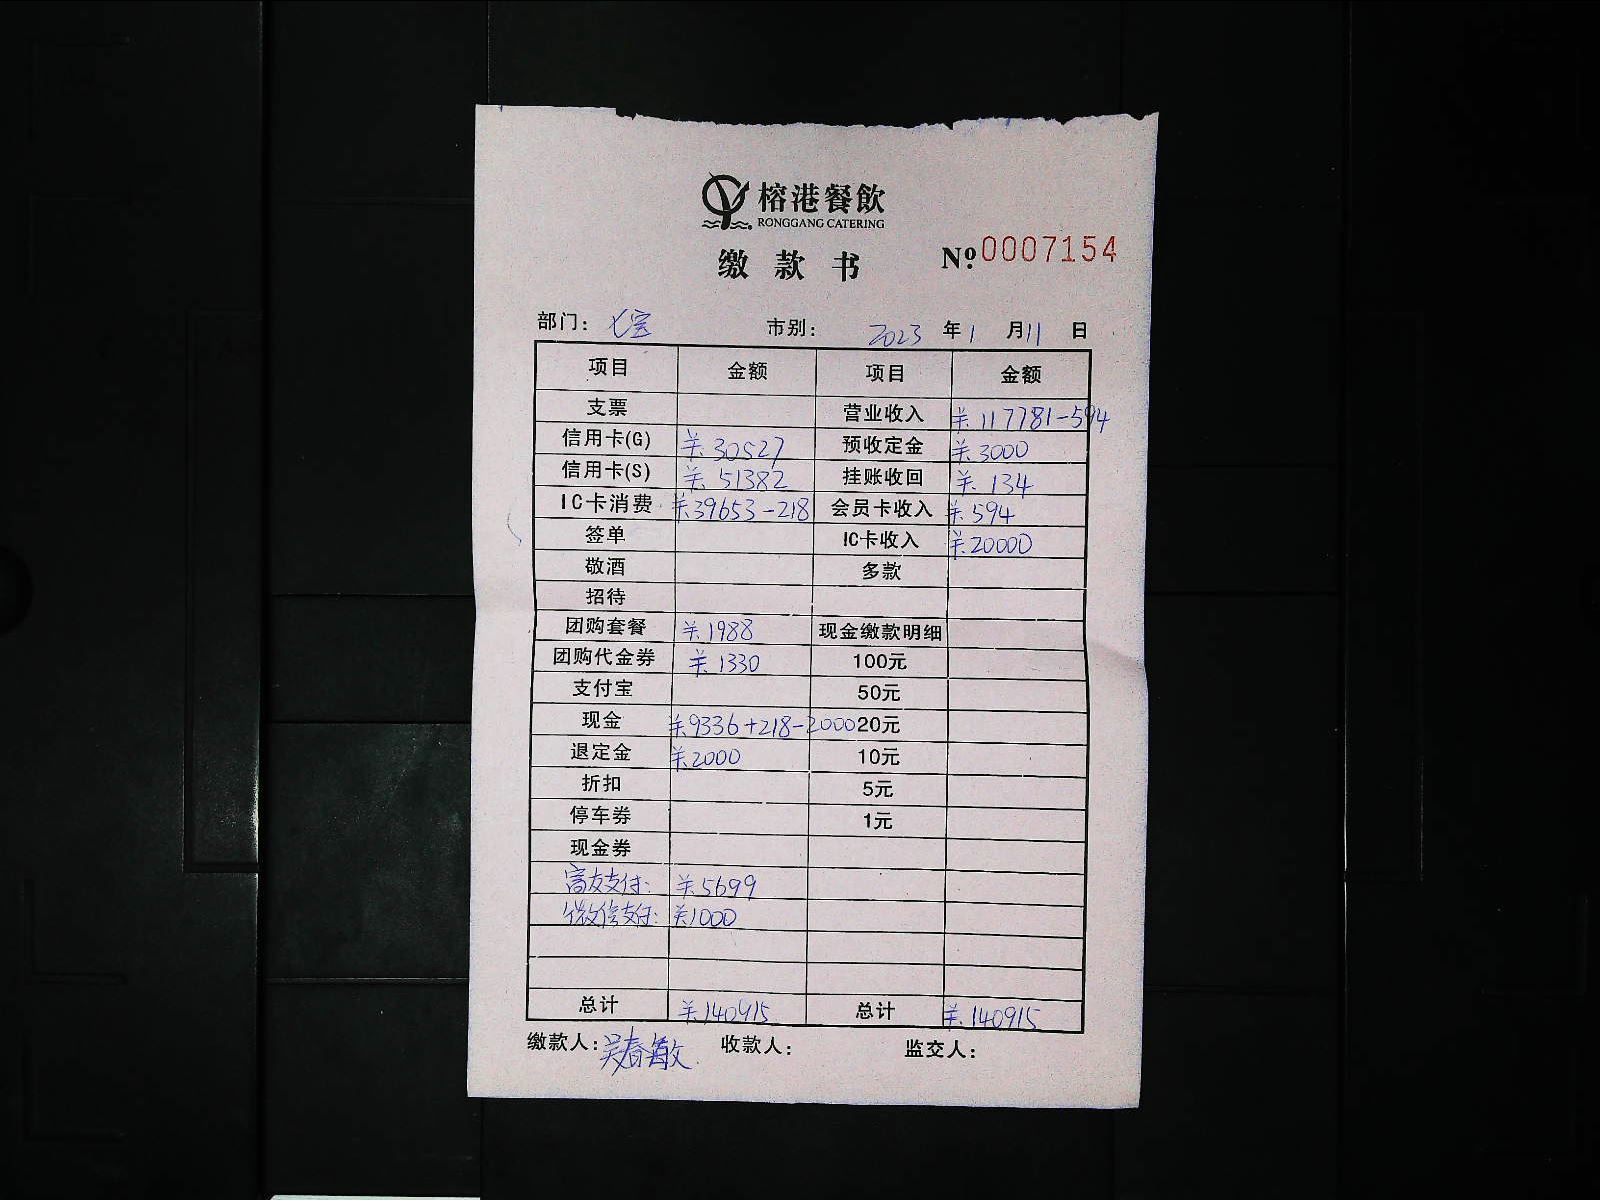 榕港餐飲
RONGGANG CATERING
缴款书 Nº 0007154
部门: 七宝 市别: 2023 年 1 月 11 日
项目 金额 项目 金额
支票 营业收入 ¥.117781-594
信用卡(G) ¥.30527 预收定金 ¥.3000
信用卡(S) ¥.51382 挂账收回 ¥.134
IC卡消费 ¥.39653-218 会员卡收入 ¥.594
签单 IC卡收入 ¥.20000
敬酒 多款
招待
团购套餐 ¥.1988 现金缴款明细
团购代金券 ¥.1330 100元
支付宝 50元
现金 ¥.9336+218-2000 20元
退定金 ¥.2000 10元
折扣 5元
停车券 1元
现金券
富友支付: ¥.5699
微信支付: ¥1000
总计 ¥.140915 总计 ¥.140915
缴款人: 吴春敏 收款人: 监交人: